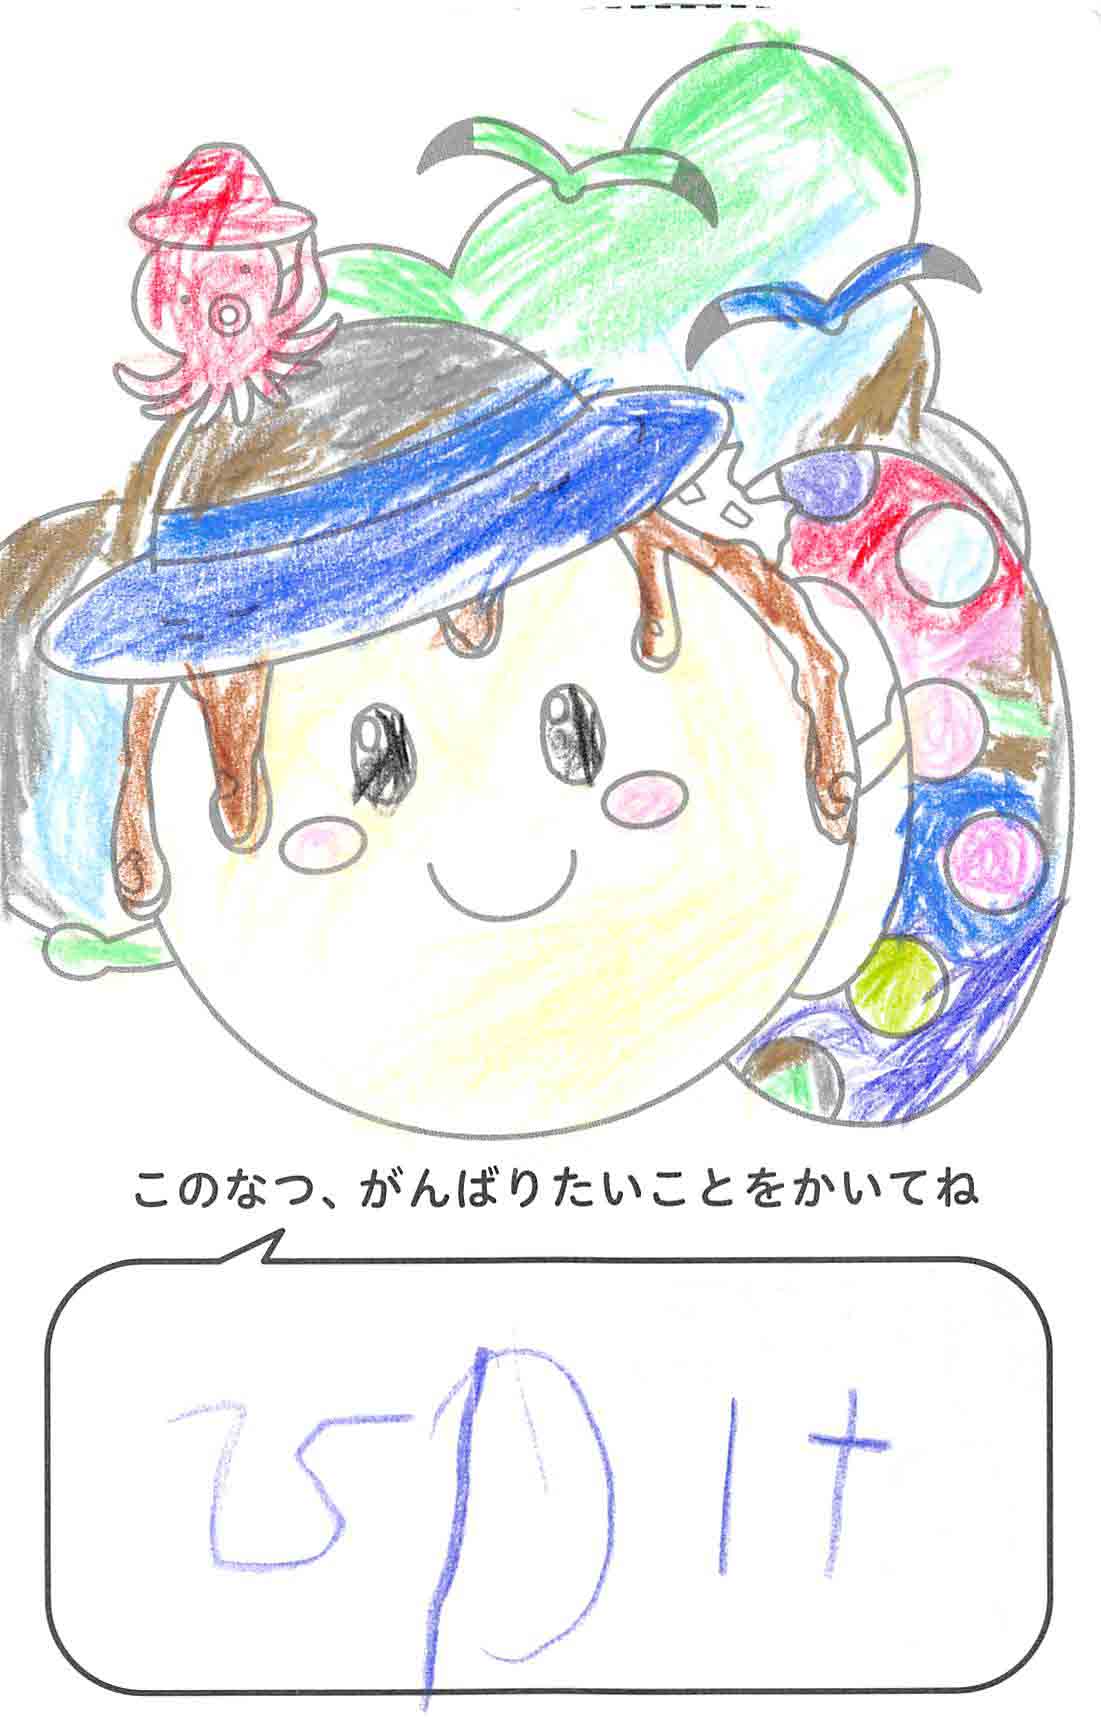 このなつ、がんばりたいことをかいてね